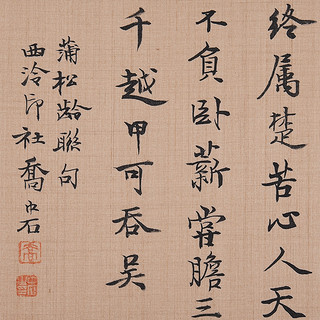 终属楚苦心人天
不負卧薪嘗膽三
千越甲可吞吴
蒲松龄联句
西泠印社喬中石